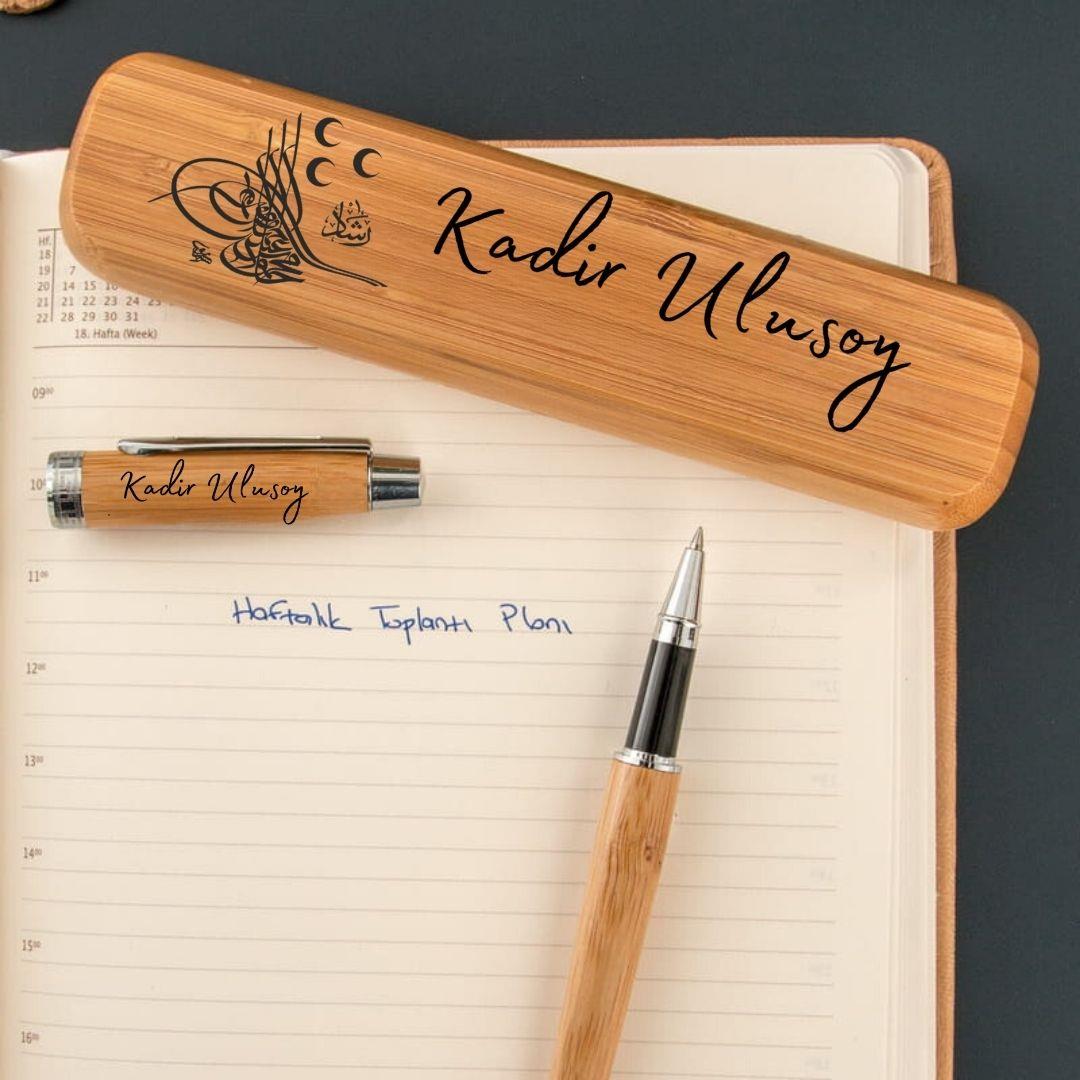 Kadir Ulusoy
رشاد
Hf.
18
19 7
20 14 15 16
21 21 22 23 24 25
22 28 29 30 31
18. Hafta (Week)
09⁰⁰
Kadir Ulusoy
10
11⁰⁰
Haftalık Toplantı Planı
12⁰⁰
13⁰⁰
14⁰⁰
15⁰⁰
16⁰⁰